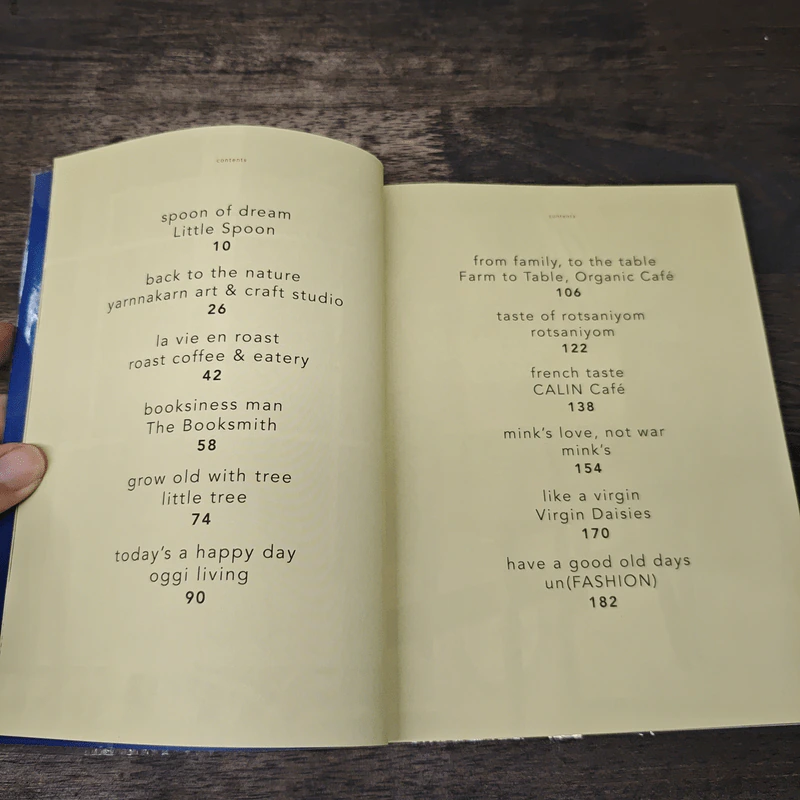 contents
spoon of dream
Little Spoon
10
back to the nature
yarnnakarn art & craft studio
26
la vie en roast
roast coffee & eatery
42
booksiness man
The Booksmith
58
grow old with tree
little tree
74
today's a happy day
oggi living
90
contents
from family, to the table
Farm to Table, Organic Café
106
taste of rotsaniyom
rotsaniyom
122
french taste
CALIN Café
138
mink's love, not war
mink's
154
like a virgin
Virgin Daisies
170
have a good old days
un(FASHION)
182